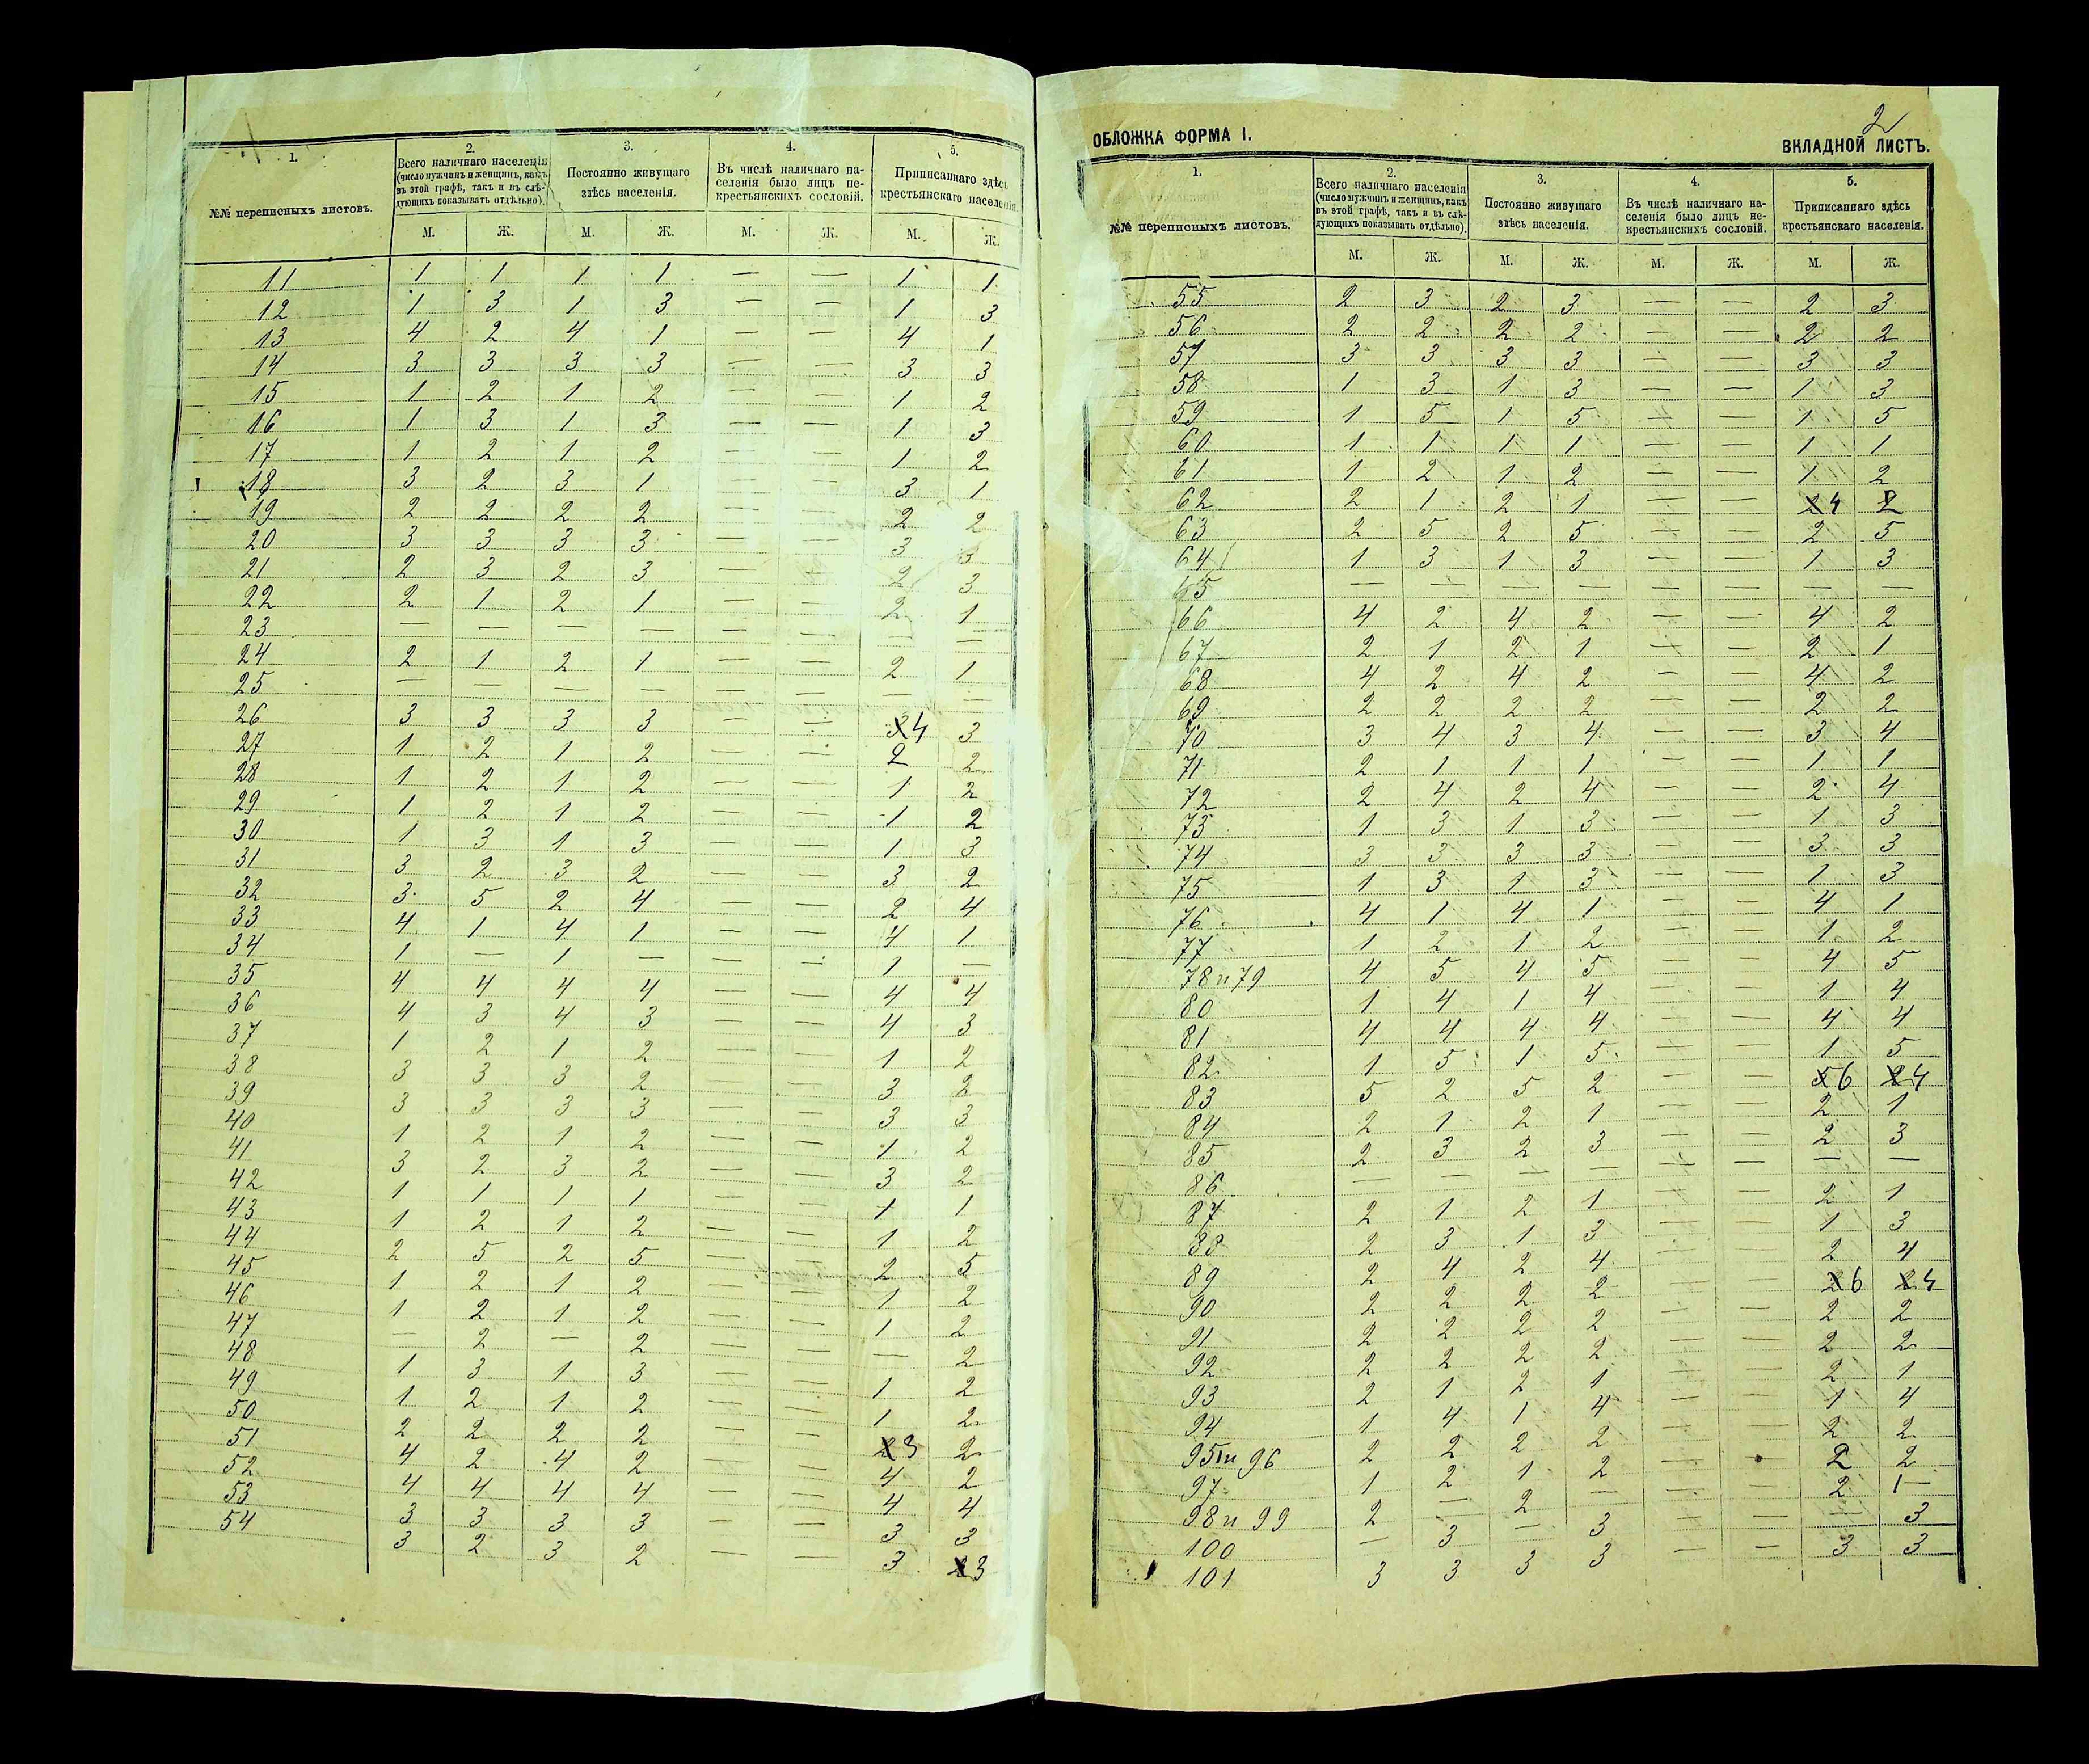 1. 2. 3. 4. 5.
№№ переписныхъ листовъ. Всего наличнаго населенія (число мужчинъ и женщинъ, какъ въ этой графѣ, такъ и въ слѣдующихъ показывать отдѣльно). Постоянно живущаго здѣсь населенія. Въ числѣ наличнаго населенія было лицъ некрестьянскихъ сословій. Приписаннаго здѣсь крестьянскаго населенія.
М. Ж. М. Ж. М. Ж. М. Ж.
11 1 1 1 1 — — 1 1
12 1 3 1 3 — — 1 3
13 4 2 4 1 — — 4 1
14 3 3 3 3 — — 3 3
15 1 2 1 2 — — 1 2
16 1 3 1 3 — — 1 3
17 1 2 1 2 — — 1 2
18 3 2 3 1 — — 3 1
19 2 2 2 2 — — 2 2
20 3 3 3 3 — — 3 3
21 2 3 2 3 — — 2 3
22 2 1 2 1 — — 2 1
23 — — — — — — — —
24 2 1 2 1 — — 2 1
25 — — — — — — — —
26 3 3 3 3 — — 4 3
27 1 2 1 2 — — 2 2
28 1 2 1 2 — — 1 2
29 1 2 1 2 — — 1 2
30 1 3 1 3 — — 1 3
31 3 2 3 2 — — 3 2
32 3 5 2 4 — — 2 4
33 4 1 4 1 — — 4 1
34 1 — 1 — — — 1 —
35 4 4 4 4 — — 4 4
36 4 3 4 3 — — 4 3
37 1 2 1 2 — — 1 2
38 3 3 3 2 — — 3 2
39 3 3 3 3 — — 3 3
40 1 2 1 2 — — 1 2
41 3 2 3 2 — — 3 2
42 1 1 1 1 — — 1 1
43 1 2 1 2 — — 1 2
44 2 5 2 5 — — 2 5
45 1 2 1 2 — — 1 2
46 1 2 1 2 — — 1 2
47 — 2 — 2 — — — 2
48 1 3 1 3 — — 1 2
49 1 2 1 2 — — 1 2
50 2 2 2 2 — — 3 2
51 4 2 4 2 — — 4 2
52 4 4 4 4 — — 4 4
53 3 3 3 3 — — 3 3
54 3 2 3 2 — — 3 3
2
ОБЛОЖКА ФОРМА I. ВКЛАДНОЙ ЛИСТЪ.
1. 2. 3. 4. 5.
№№ переписныхъ листовъ. Всего наличнаго населенія (число мужчинъ и женщинъ, какъ въ этой графѣ, такъ и въ слѣдующихъ показывать отдѣльно). Постоянно живущаго здѣсь населенія. Въ числѣ наличнаго населенія было лицъ некрестьянскихъ сословій. Приписаннаго здѣсь крестьянскаго населенія.
М. Ж. М. Ж. М. Ж. М. Ж.
55 2 3 2 3 — — 2 3
56 2 2 2 2 — — 2 2
57 3 3 3 3 — — 3 3
58 1 3 1 3 — — 1 3
59 1 5 1 5 — — 1 5
60 1 1 1 1 — — 1 1
61 1 2 1 2 — — 1 2
62 2 1 2 1 — — 4 2
63 2 5 2 5 — — 2 5
64 1 3 1 3 — — 1 3
65 — — — — — — — —
66 4 2 4 2 — — 4 2
67 2 1 2 1 — — 2 1
68 4 2 4 2 — — 4 2
69 2 2 2 2 — — 2 2
70 3 4 3 4 — — 3 4
71 2 1 1 1 — — 1 1
72 2 4 2 4 — — 2 4
73 1 3 1 3 — — 1 3
74 3 3 3 3 — — 3 3
75 1 3 1 3 — — 1 3
76 4 1 4 1 — — 4 1
77 1 2 1 2 — — 1 2
78 и 79 4 5 4 5 — — 4 5
80 1 4 1 4 — — 1 4
81 4 4 4 4 — — 4 4
82 1 5 1 5 — — 1 5
83 5 2 5 2 — — 6 4
84 2 1 2 1 — — 2 1
85 2 3 2 3 — — 2 3
86 — — — — — — — —
87 2 1 2 1 — — 2 1
88 2 3 1 3 — — 1 3
89 2 4 2 4 — — 2 4
90 2 2 2 2 — — 6 4
91 2 2 2 2 — — 2 2
92 2 2 2 2 — — 2 2
93 2 1 2 1 — — 2 1
94 1 4 1 4 — — 1 4
95 и 96 2 2 2 2 — — 2 2
97 1 2 1 2 — — 2 2
98 и 99 2 — 2 — — — 2 1
100 — 3 — 3 — — — 3
101 3 3 3 3 — — 3 3